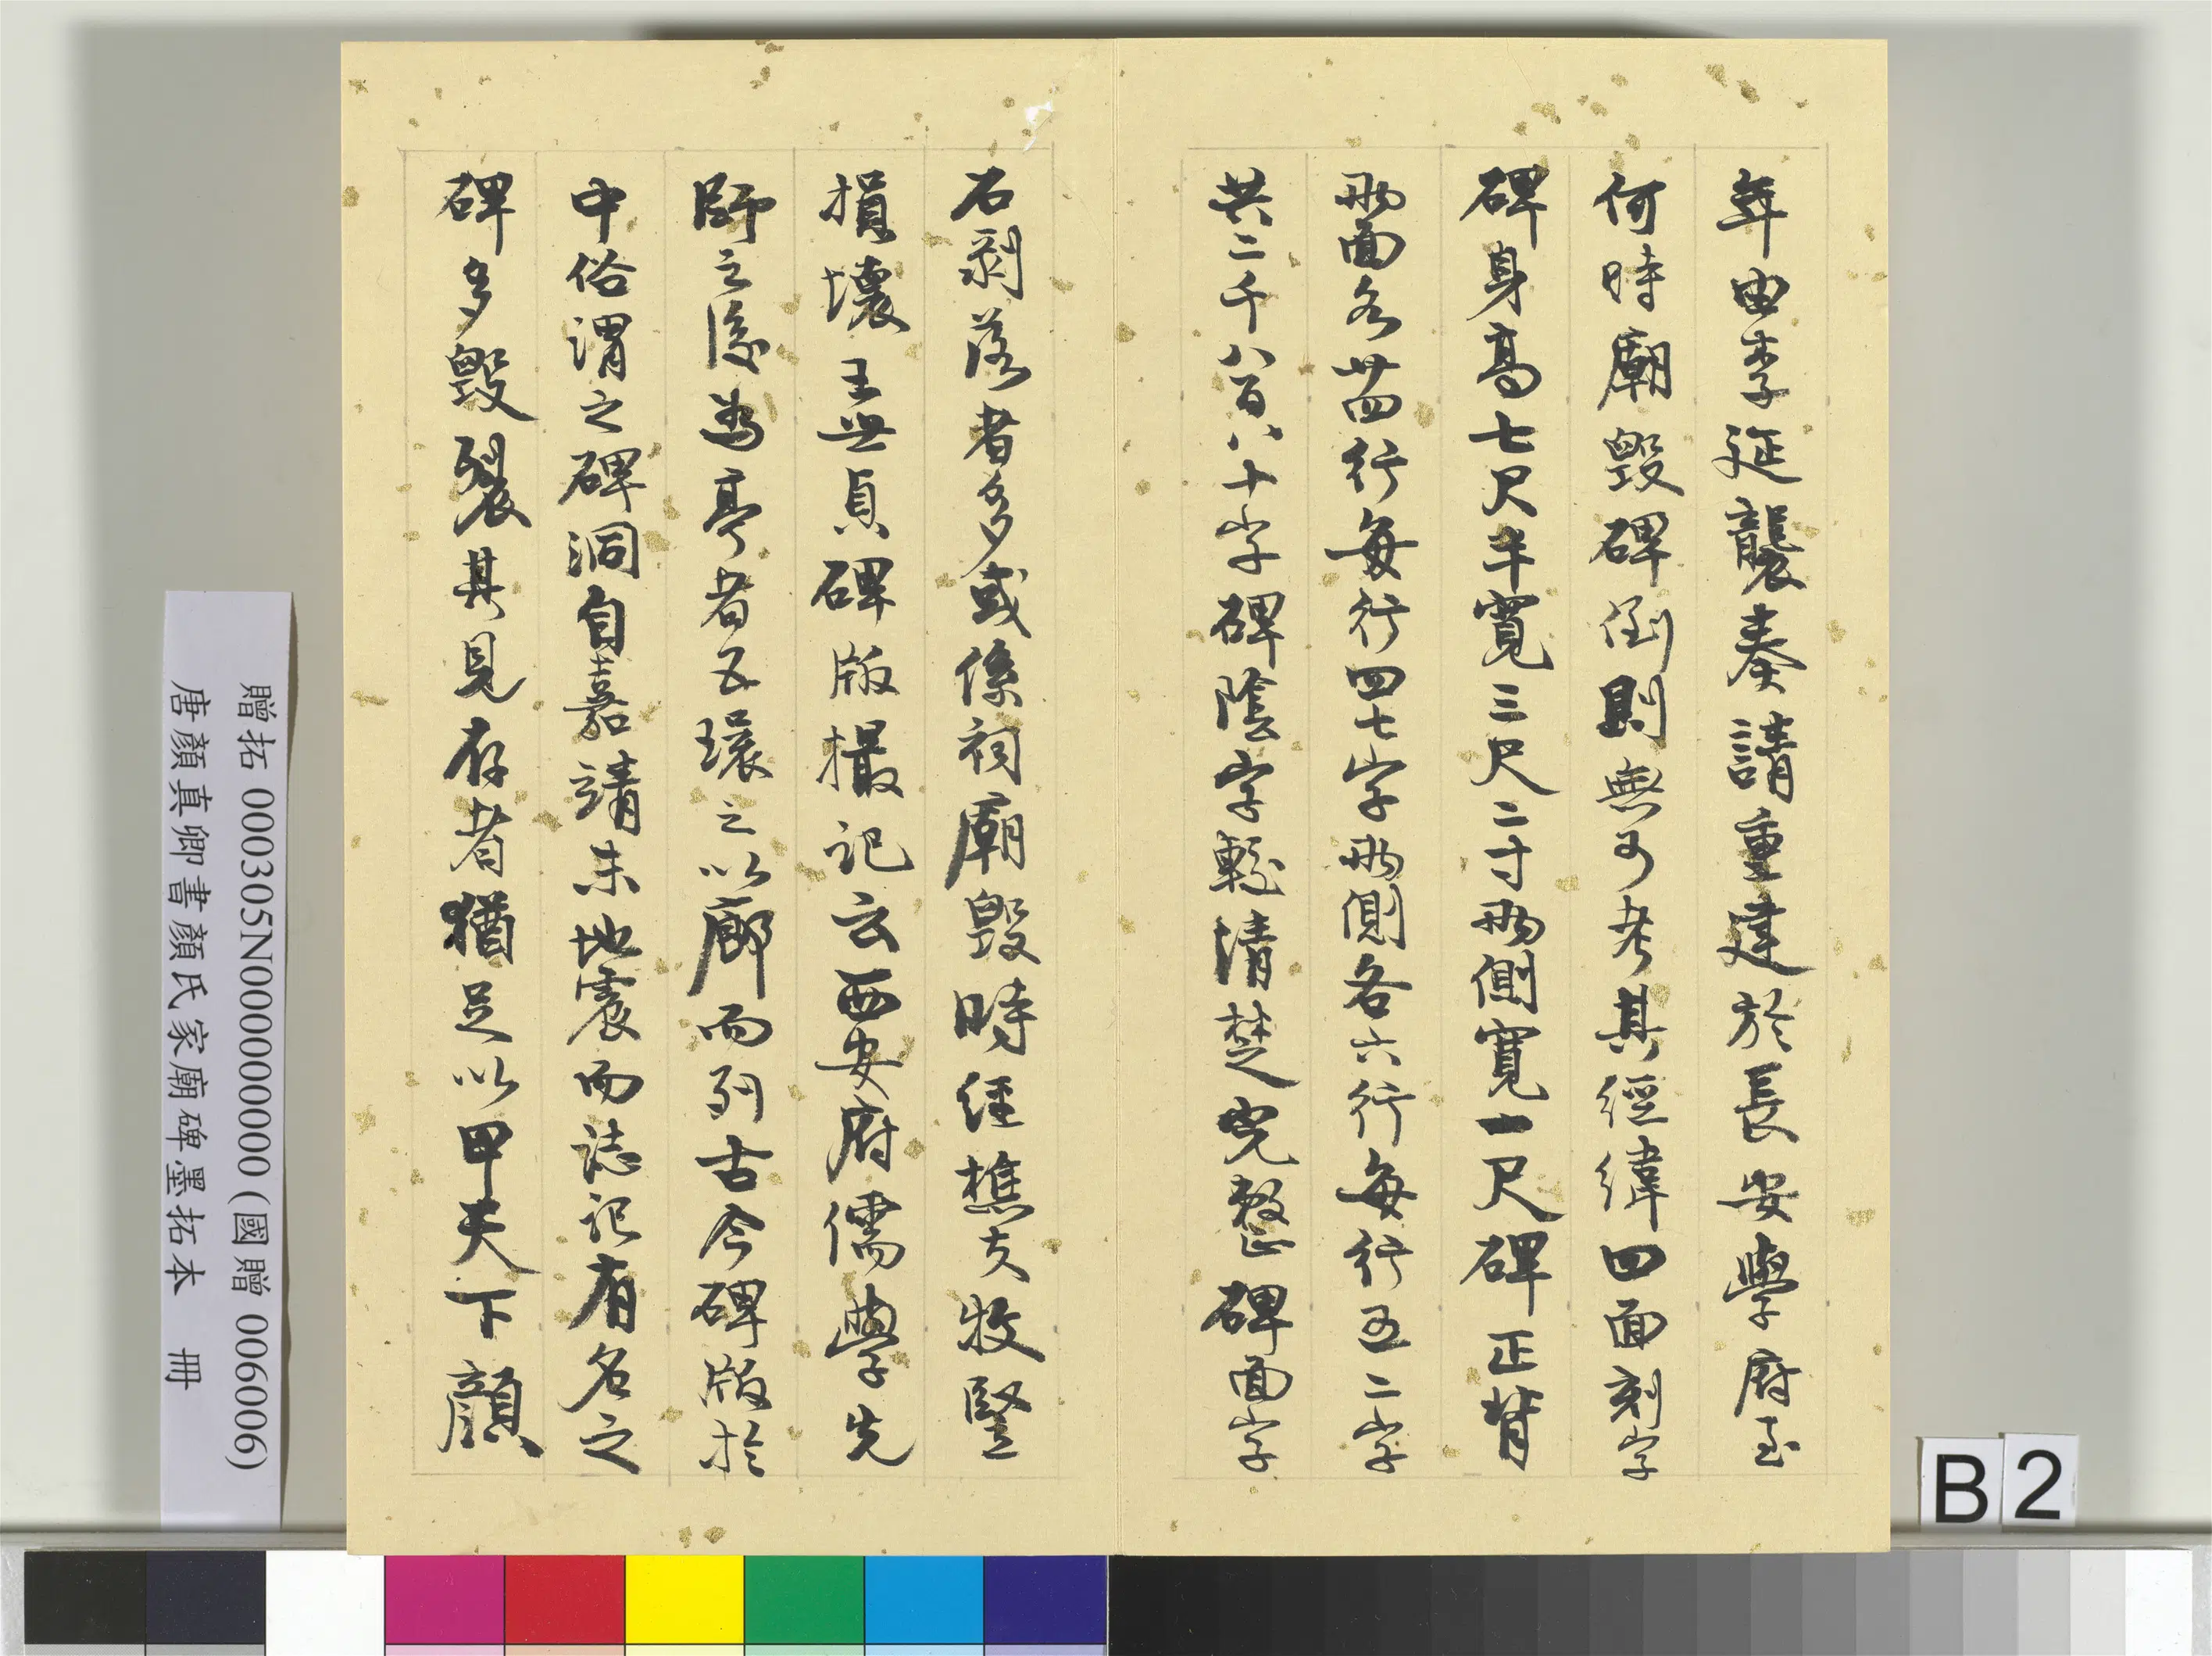 年由李延襲奏請重建於長安學府至
何時廟毀碑函則無可考其經緯四面刻字
碑身高七尺半寬三尺二寸兩側寬一尺碑正背
兩面各廿四行每行四七字兩側各六行每行五二字
共二千八百八十字碑陰字輕清楚完整碑面字
石剥落者多或係祠廟毀時經樵夫牧豎
損壞王無貞碑版攝記云西安府儒學先
師之後為亭者五環之以廊而列古今碑版於
中俗謂之碑洞自嘉靖末地震而誌記有名之
碑多毀裂其見存者猶足以甲天下顏
贈拓 000305N000000000 (國贈 006006)
唐顏真卿書顏氏家廟碑墨拓本 冊
B2